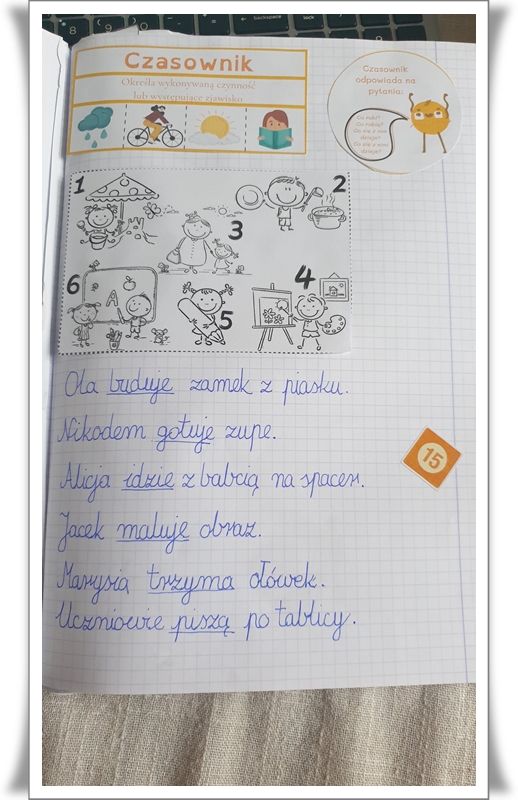 Czasownik
Określa wykonywaną czynność
lub występujące zjawisko
Czasownik
odpowiada na
pytania:
Co robi?
Co robią?
Co się z nim
dzieje?
Co się z nimi
dzieje?
1
2
3
4
5
6
A
Ola buduje zamek z piasku.
Nikodem gotuje zupe.
Alicja idzie z babcią na spacer.
15
Jacek maluje obraz.
Marysia trzyma ołówek.
Uczniowie piszą po tablicy.